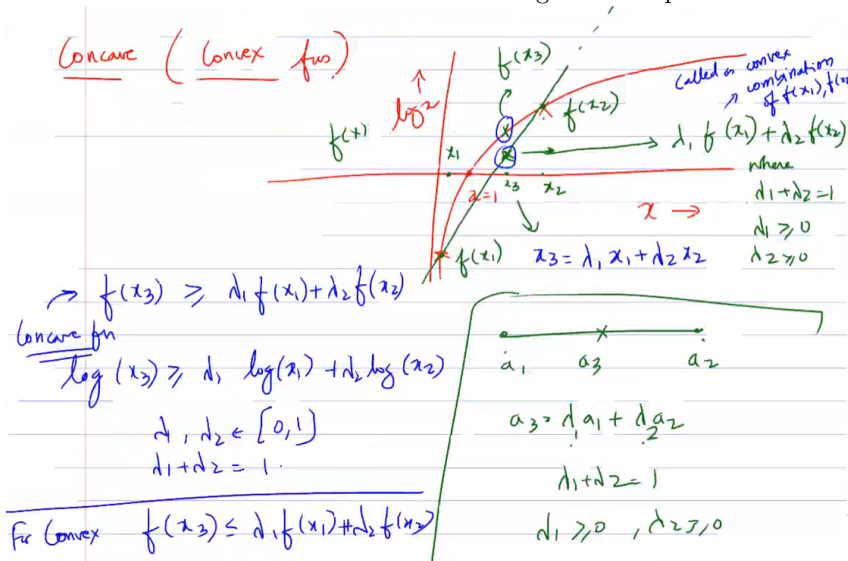 Concave ( Convex fns )
f(x3)
log x
called a convex
combination
of f(x1), f(x2
f(x)
f(x2)
x1
λ1 f(x1) + λ2 f(x2)
where
x=1
x3
x2
λ1+λ2=1
x →
λ1 ≥ 0
λ2 ≥ 0
f(x1)
x3 = λ1 x1 + λ2 x2
→ f(x3) ≥ λ1 f(x1) + λ2 f(x2)
Concave fn
log (x3) ≥ λ1 log(x1) + λ2 log(x2)
λ1, λ2 ∈ [0,1]
λ1+λ2 = 1.
For Convex f(x3) ≤ λ1 f(x1) + λ2 f(x2)
a1 a3 a2
a3 = λ1 a1 + λ2 a2
λ1+λ2 = 1
λ1 ≥ 0 , λ2 ≥ 0